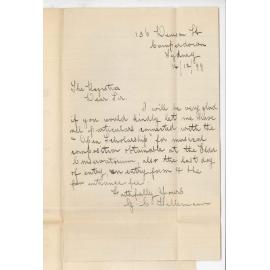 136 Denison St
Camperdown
Sydney
4/12/99
The Registrar
Dear Sir
I will be very glad
if you would kindly let me have
all particulars connected with the
"Open Scholarship" for musical
composition obtainable at the
Conservatorium, also the last day
of entry, an entry form & the
for entrance fee
Faithfully Yours